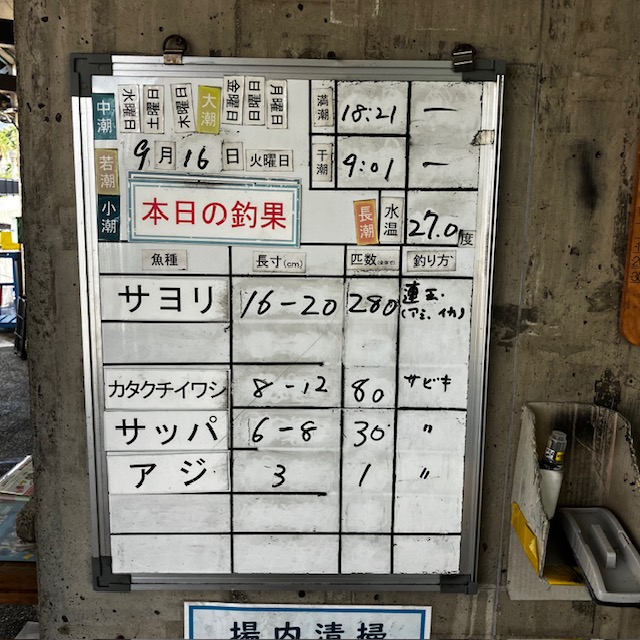 中潮 水曜日 土曜日 木曜日 大潮 金曜日 日曜日 月曜日 満潮 18:21 ー
若潮 9月16日 火曜日 干潮 9:01 ー
小潮 本日の釣果 長潮 水温 27.0度
魚種 長寸(cm) 匹数 釣り方
サヨリ 16-20 280 連玉.
(アミ、イカ)
カタクチイワシ 8-12 80 サビキ
サッパ 6-8 30 〃
アジ 3 1 〃
場内清掃